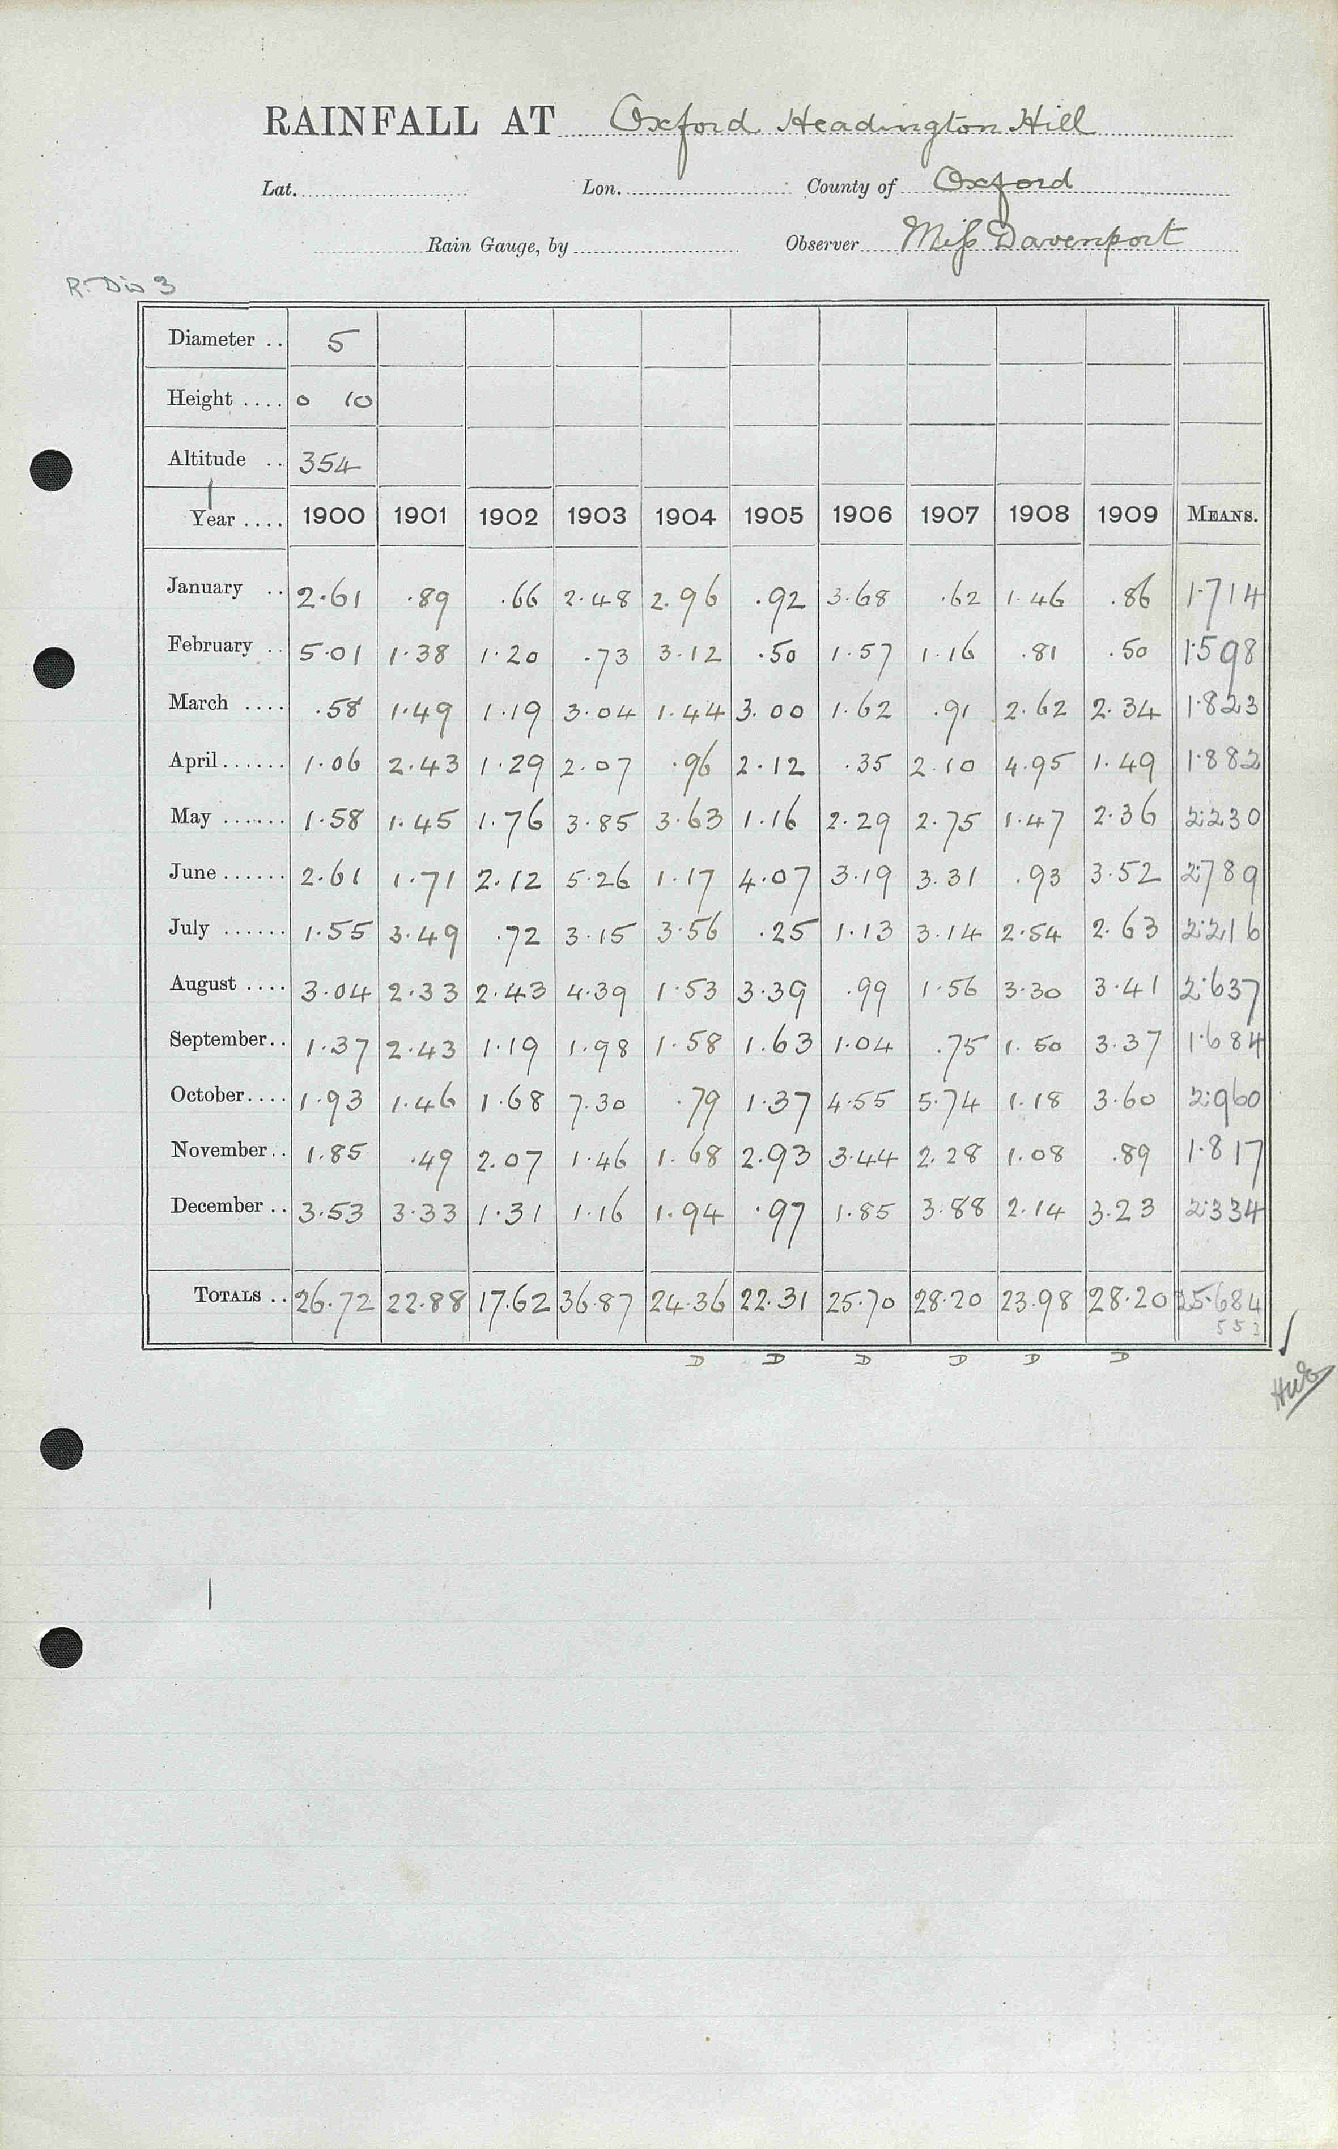 RAINFALL AT Oxford Headington Hill
Lat. Lon. County of Oxford
Rain Gauge, by Observer Miss Davenport
R. Div 3
Diameter .. 5
Height .... 0 10
Altitude .. 354
Year .... 1900 1901 1902 1903 1904 1905 1906 1907 1908 1909 MEANS.
January .. 2.61 .89 .66 2.48 2.96 .92 3.68 .62 1.46 .86 1.714
February .. 5.01 1.38 1.20 .73 3.12 .50 1.57 1.16 .81 .50 1.598
March .... .58 1.49 1.19 3.04 1.44 3.00 1.62 .91 2.62 2.34 1.823
April...... 1.06 2.43 1.29 2.07 .96 2.12 .35 2.10 4.95 1.49 1.882
May ...... 1.58 1.45 1.76 3.85 3.63 1.16 2.29 2.75 1.47 2.36 2.230
June...... 2.61 1.71 2.12 5.26 1.17 4.07 3.19 3.31 .93 3.52 2.789
July ...... 1.55 3.49 .72 3.15 3.56 .25 1.13 3.14 2.54 2.63 2.216
August .... 3.04 2.33 2.43 4.39 1.53 3.39 .99 1.56 3.30 3.41 2.637
September.. 1.37 2.43 1.19 1.98 1.58 1.63 1.04 .75 1.50 3.37 1.684
October.... 1.93 1.46 1.68 7.30 .79 1.37 4.55 5.74 1.18 3.60 2.960
November.. 1.85 .49 2.07 1.46 1.68 2.93 3.44 2.28 1.08 .89 1.817
December .. 3.53 3.33 1.31 1.16 1.94 .97 1.85 3.88 2.14 3.23 2.334
TOTALS .. 26.72 22.88 17.62 36.87 24.36 22.31 25.70 28.20 23.98 28.20 25.684
D D D D D D